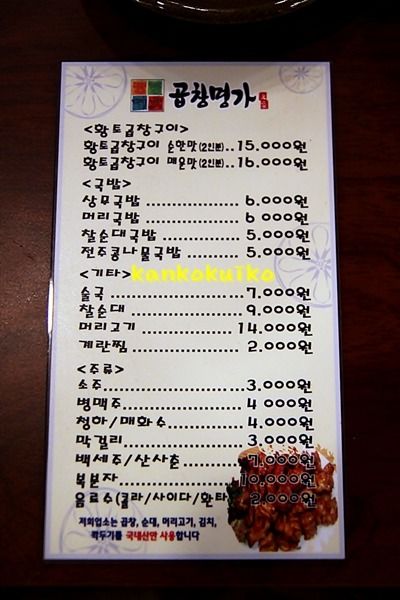 곱창명가
<황토곱창구이>
황토곱창구이 순한맛(2인분)..15.000원
황토곱창구이 매운맛(2인분)..16.000원
<국밥>
상무국밥 ................ 6.000원
머리국밥 ................ 6 000원
찰순대국밥 ............. 5.000원
전주콩나물국밥 ........ 5.000원
<기타>
kankokuiko
술국 ....................... 7.000원
찰순대 .................... 9.000원
머리고기 ................. 14.000원
계란찜 .................... 2.000원
<주류>
소주 ....................... 3.000원
병맥주 .................... 4 000원
청하/매화수 ............. 4.000원
막걸리 .................... 3.000원
백세주/산사춘 .......... 7.000원
복분자 .................... 10.000원
음료수(콜라/사이다/환타) 2.000원
저희업소는 곱창, 순대, 머리고기, 김치,
깍두기를 국내산만 사용합니다